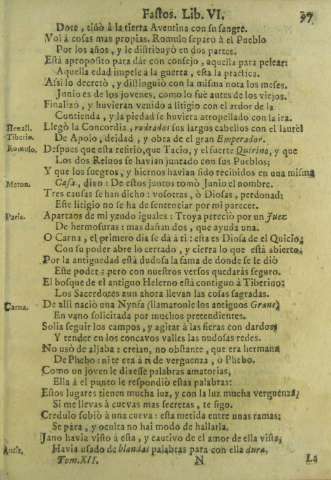 Fastos. Lib. VI. 97
Dote, tiñó à la tierra Aventina con su sangre.
Voi á cosas mas propias. Romulo separó à el Pueblo
Por los años, y le distribuyò en dos partes.
Està aproposito para dàr consejo, aquella para pelear:
Aquella edad impele à la guerra, esta la practica.
Assi lo decretò, y distinguiò con la misma nota los meses.
Junio es de los jovenes, como lo fuè antes de los viejos.
Finalizò, y huvieran venido à litigio con el ardor de la
Contienda, y la piedad se huviera atropellado con la ira.
Llegò la Concordia, rodeados sus largos cabellos con el laurel
Tiberio.
De Apolo, deidad, y obra de el gran Emperador.
Romulo.
Despues que esta refiriò, que Tacio, y el fuerte Quirino, y que
Los dos Reinos se havian juntado con sus Pueblos;
Y que los suegros, y hiernos havian sido recibidos en una misma
Casa, dixo: De estos juntos tomò Junio el nombre.
Tres causas se han dicho: vosotras, ò Diosas, perdonad:
Este litigio no se ha de sentenciar por mi parecer.
Paris.
Apartaos de mi yendo iguales: Troya pereciò por un Juez
De hermosuras: mas dañan dos, que ayuda una.
O Carna, el primero dia se dà à ti: esta es Diosa de el Quicio;
Con su poder abre lo cerrado, y cierra lo que està abierto.
Por la antiguedad està dudosa la fama de donde se le diò
Este poder: pero con nuestros versos quedaràs seguro.
El bosque de el antiguo Helerno està contiguo à Tiberino:
Los Sacerdotes aun ahora llevan las cosas sagradas.
Carna.
De allì naciò una Nynfa (llamaronle los antiguos Grane)
En vano solicitada por muchos pretendientes.
Solìa seguir los campos, y agitar à las fieras con dardos,
Y tender en los concavos valles las nudosas redes.
No usò de aljaba: creìan, no obstante, que era hermana
De Phebo: ni te era à ti de verguenza, ò Phebo.
Como un joven le dixesse palabras amatorias,
Ella à el punto le respondiò estas palabras:
Estos lugares tienen mucha luz, y con la luz mucha verguenza;
Si me llevas à cuevas mas secretas, te sigo.
Credulo subiò à una cueva: esta metida entre unas ramas;
Se pàra, y oculta no hai modo de hallarla.
Jano havia visto à esta, y cautivo de el amor de ella vista,
Havia usado de blandas palabras para con ella dura.
Tom. XII. N La